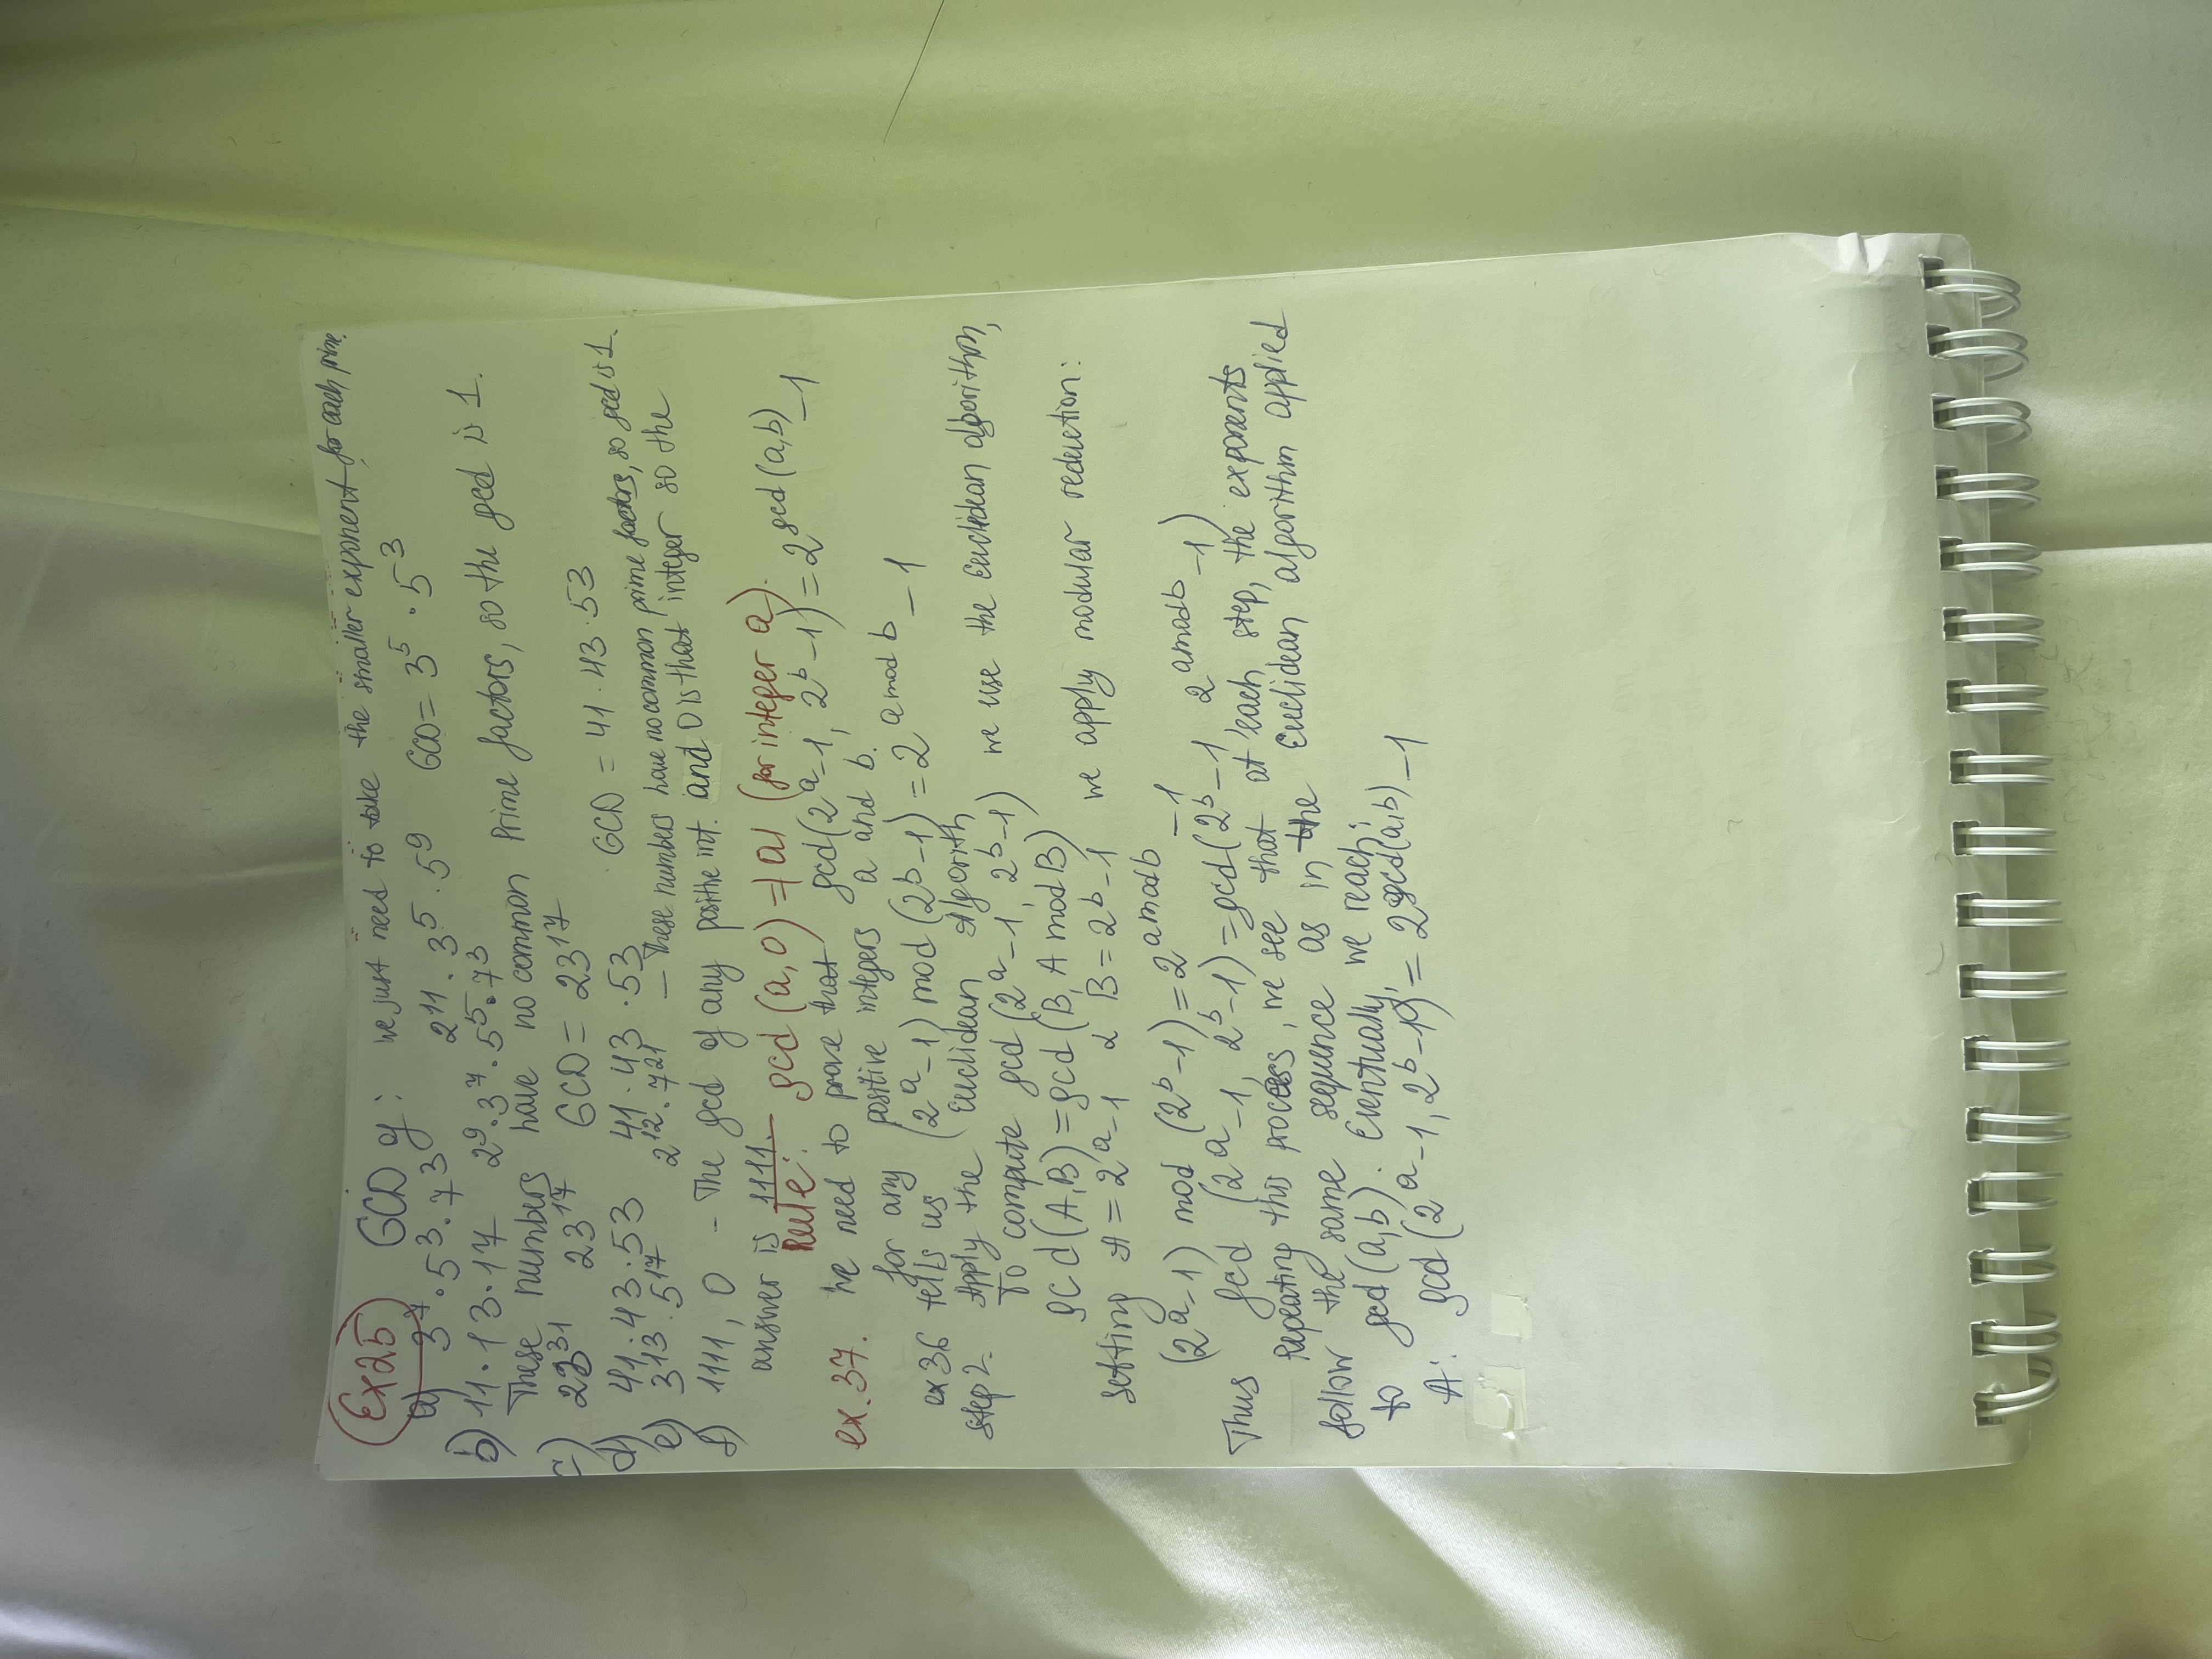 Ex25 GCD of: we just need to take the smaller exponent for each prime.
a) 3⁷·5³·7³ 2¹¹·3⁵·5⁹ GCD = 3⁵·5³
b) 11·13·17 2⁹·3⁷·5⁵·7³
These numbers have no common Prime factors, so the gcd is 1.
c) 23³¹ 23¹⁷ GCD = 23¹⁷
d) 41·43·53 41·43·53 GCD = 41·43·53
e) 3¹³·5¹⁷ 2¹²·7²¹ – These numbers have no common prime factors, so gcd is 1.
f) 1111, 0 – The gcd of any positive int. and 0 is that integer so the
answer is 1111.
Rule: gcd(a,0) = |a| (for integer a).
ex.37. We need to prove that gcd(2^a-1, 2^b-1) = 2^gcd(a,b) -1
for any positive integers a and b.
ex 36 tells us (2^a-1) mod (2^b-1) = 2^(a mod b) -1
Step 2. Apply the Euclidean Algorith
To compute gcd(2^a-1, 2^b-1) we use the Euclidean algorithm,
gcd(A,B) = gcd(B, A mod B)
Setting A = 2^a-1 & B = 2^b-1 we apply modular reduction:
(2^a-1) mod (2^b-1) = 2^(a mod b) -1
Thus gcd (2^a-1, 2^b-1) = gcd(2^b-1, 2^(a mod b) -1)
Repeating this process, we see that at each step, the exponents
follow the same sequence as in the Euclidean algorithm applied
to gcd(a,b). Eventually, we reach:
A: gcd(2^a-1, 2^b-1) = 2^gcd(a,b) -1